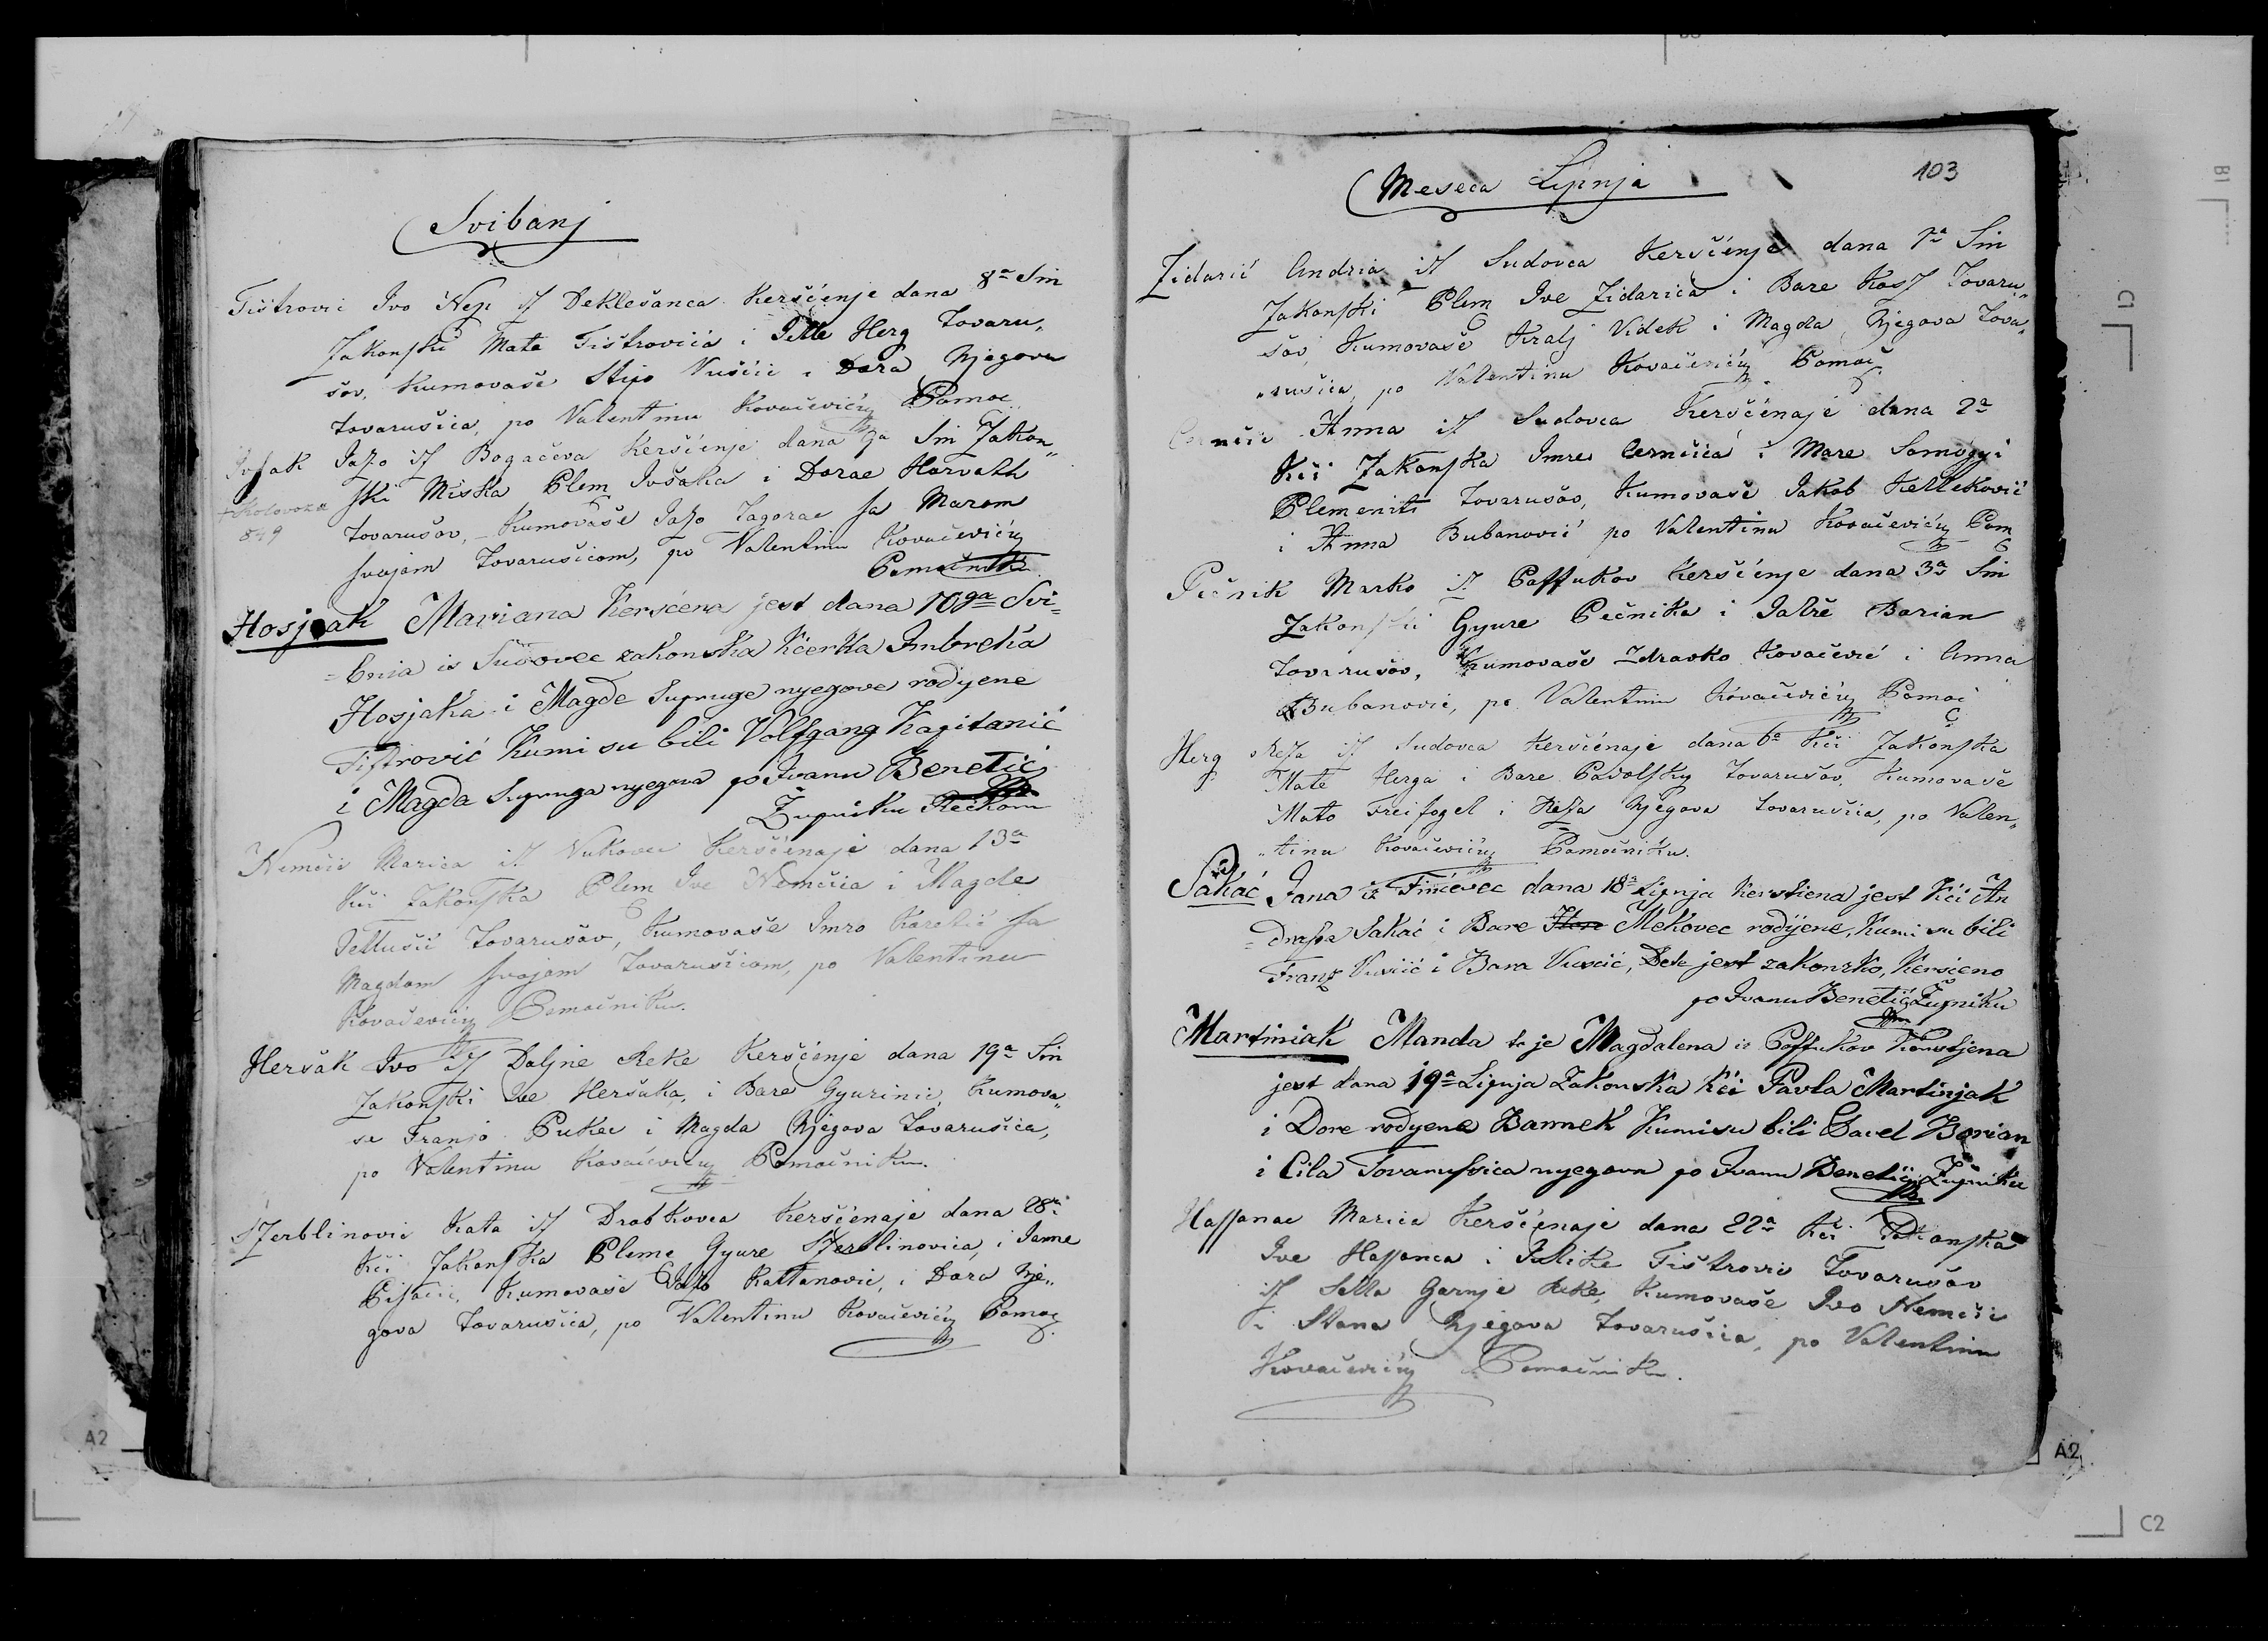 Svibanj
Tištrović Ivo Nep iz Deklešanca Keršćenje dana 8ª Sin
Zakonſki Mata Tištrovića i Jelle Herg Tovaru„
šov, Kumovaše Stipo Vuščić i Dora Njegova
tovarušica, po Valentinu Kovačevićy Pomoć
Ivſak Jaſo iſ Bogačeva Keršćenje dana 9a Sin Zakon„
ſki Miska Plem Ivšaka i Dorae Horvath
+ Kolovoza
849
tovarušov, Kumovaše Jaſo Zagorac ſa Marom
ſvojom Tovarušicom, po Valentinu Kovačevićy
Pomoćniku
Hosjak Mariana Kersćena jest dana 10ga Svi=
=bnia is Sudovec zakonska Kćerka Imbreka
Hosjaka i Magde Supruge njegove rodjene
Tiſtrović Kumi su bili Volfgang Kapitanić
i Magda Supruga njegova po Ivanu Benetić
Župniku Rečkom
Nemčić Marica iſ Vukovca Keršćenaje dana 13ª
Kći Zakonſka Plem Ive Nemčića i Magde
Pettušić Tovarušov, Kumovaše Imro Koretić ſa
Magdom ſvojom Tovarušicom, po Valentinu
Kovačevićy Pomoćniku.
Heršak Ivo iſ Doljne Reke Keršćenje dana 19ª Sin
Zakonſki Ive Heršaka, i Bare Gyurinic, Kumova„
se Franjo Pukec i Magda Njegova Tovarušica,
po Valentinu Kovačevićy Pomoćniku.
Szerblinović Kata iſ Drobkovca Keršćenaje dana 28ª
Kći Zakonſka Pleme Gyure Szerblinovića, i Janne
Piſačić, Kumovaše Jaſo Kattanović, i Dora Nje„
gova Tovarušica, po Valentinu Kovačevićy Pomoć
103
Meseca Lipnja
Zidarić Andria iſ Sudovca Keršćenje dana 1ª Sin
Zakonſki Plem Ive Zidarića i Bare Kosz Tovaru„
šov, Kumovaše Kralj Videk i Magda Njegova Tova„
„rušica, po Valentinu Kovačevićy Pomoć
Cernčić Anna iſ Sudovca Keršćenaje dana 2ª
Kći Zakonſka Imre Cernčića i Mare Somogyi
Plemeniti Tovarušov, Kumovaše Jakob Kelleković
i Anna Bubanović po Valentinu Kovačevićy Pom
Pečnik Marko iſ Poſſukov Keršćenje dana 3ª Sin
Zakonſki Gyure Pečnika i Jalže Borian
Tovarušov, Kumovaše Zdravko Kovačević i Anna
Bubanović, po Valentinu Kovačevićy Pomoć
Herg Reza iſ Sudovca Keršćenaje dana 6ª Kći Zakonſka
Mate Herga i Bare Podolſky Tovarušov, Kumovaše
Mato Freifogel i Reza Njegova Tovarušica, po Valen„
„tinu Kovačevićy Pomoćniku.
Sakać Jana iz Finčevec dana 18ª Lipnja Kerstiena jest Kći An
=draſsa Sakać i Bare Mekovec rodjene, Kumi su bili
Franz Vusćić i Bara Vusćić, Dete jest zakonsko, Kersćeno
po Ivanu Benetić Župniku
Martiniak Manda to je Magdalena is Poſſukov Kerstjena
jest dana 19ª Lipnja Zakonska Kći Pavla Martinjak
i Dore rodjene Bannek Kumi su bili Pavel Borian
i Cila Tovaruſsica njegova po Ivanu Benetić Župniku
Haſſanac Marica Keršćenaje dana 22ª Kći Zakonſka
Ive Haſſanca i Julike Tištrović Tovarušov
iſ Sella Gornje Reke, Kumovaše Ivo Nemčić
i Stana Njegova Tovarušica, po Valentinu
Kovačevićy Pomoćniku.
A2
A2
B1
C1
C2